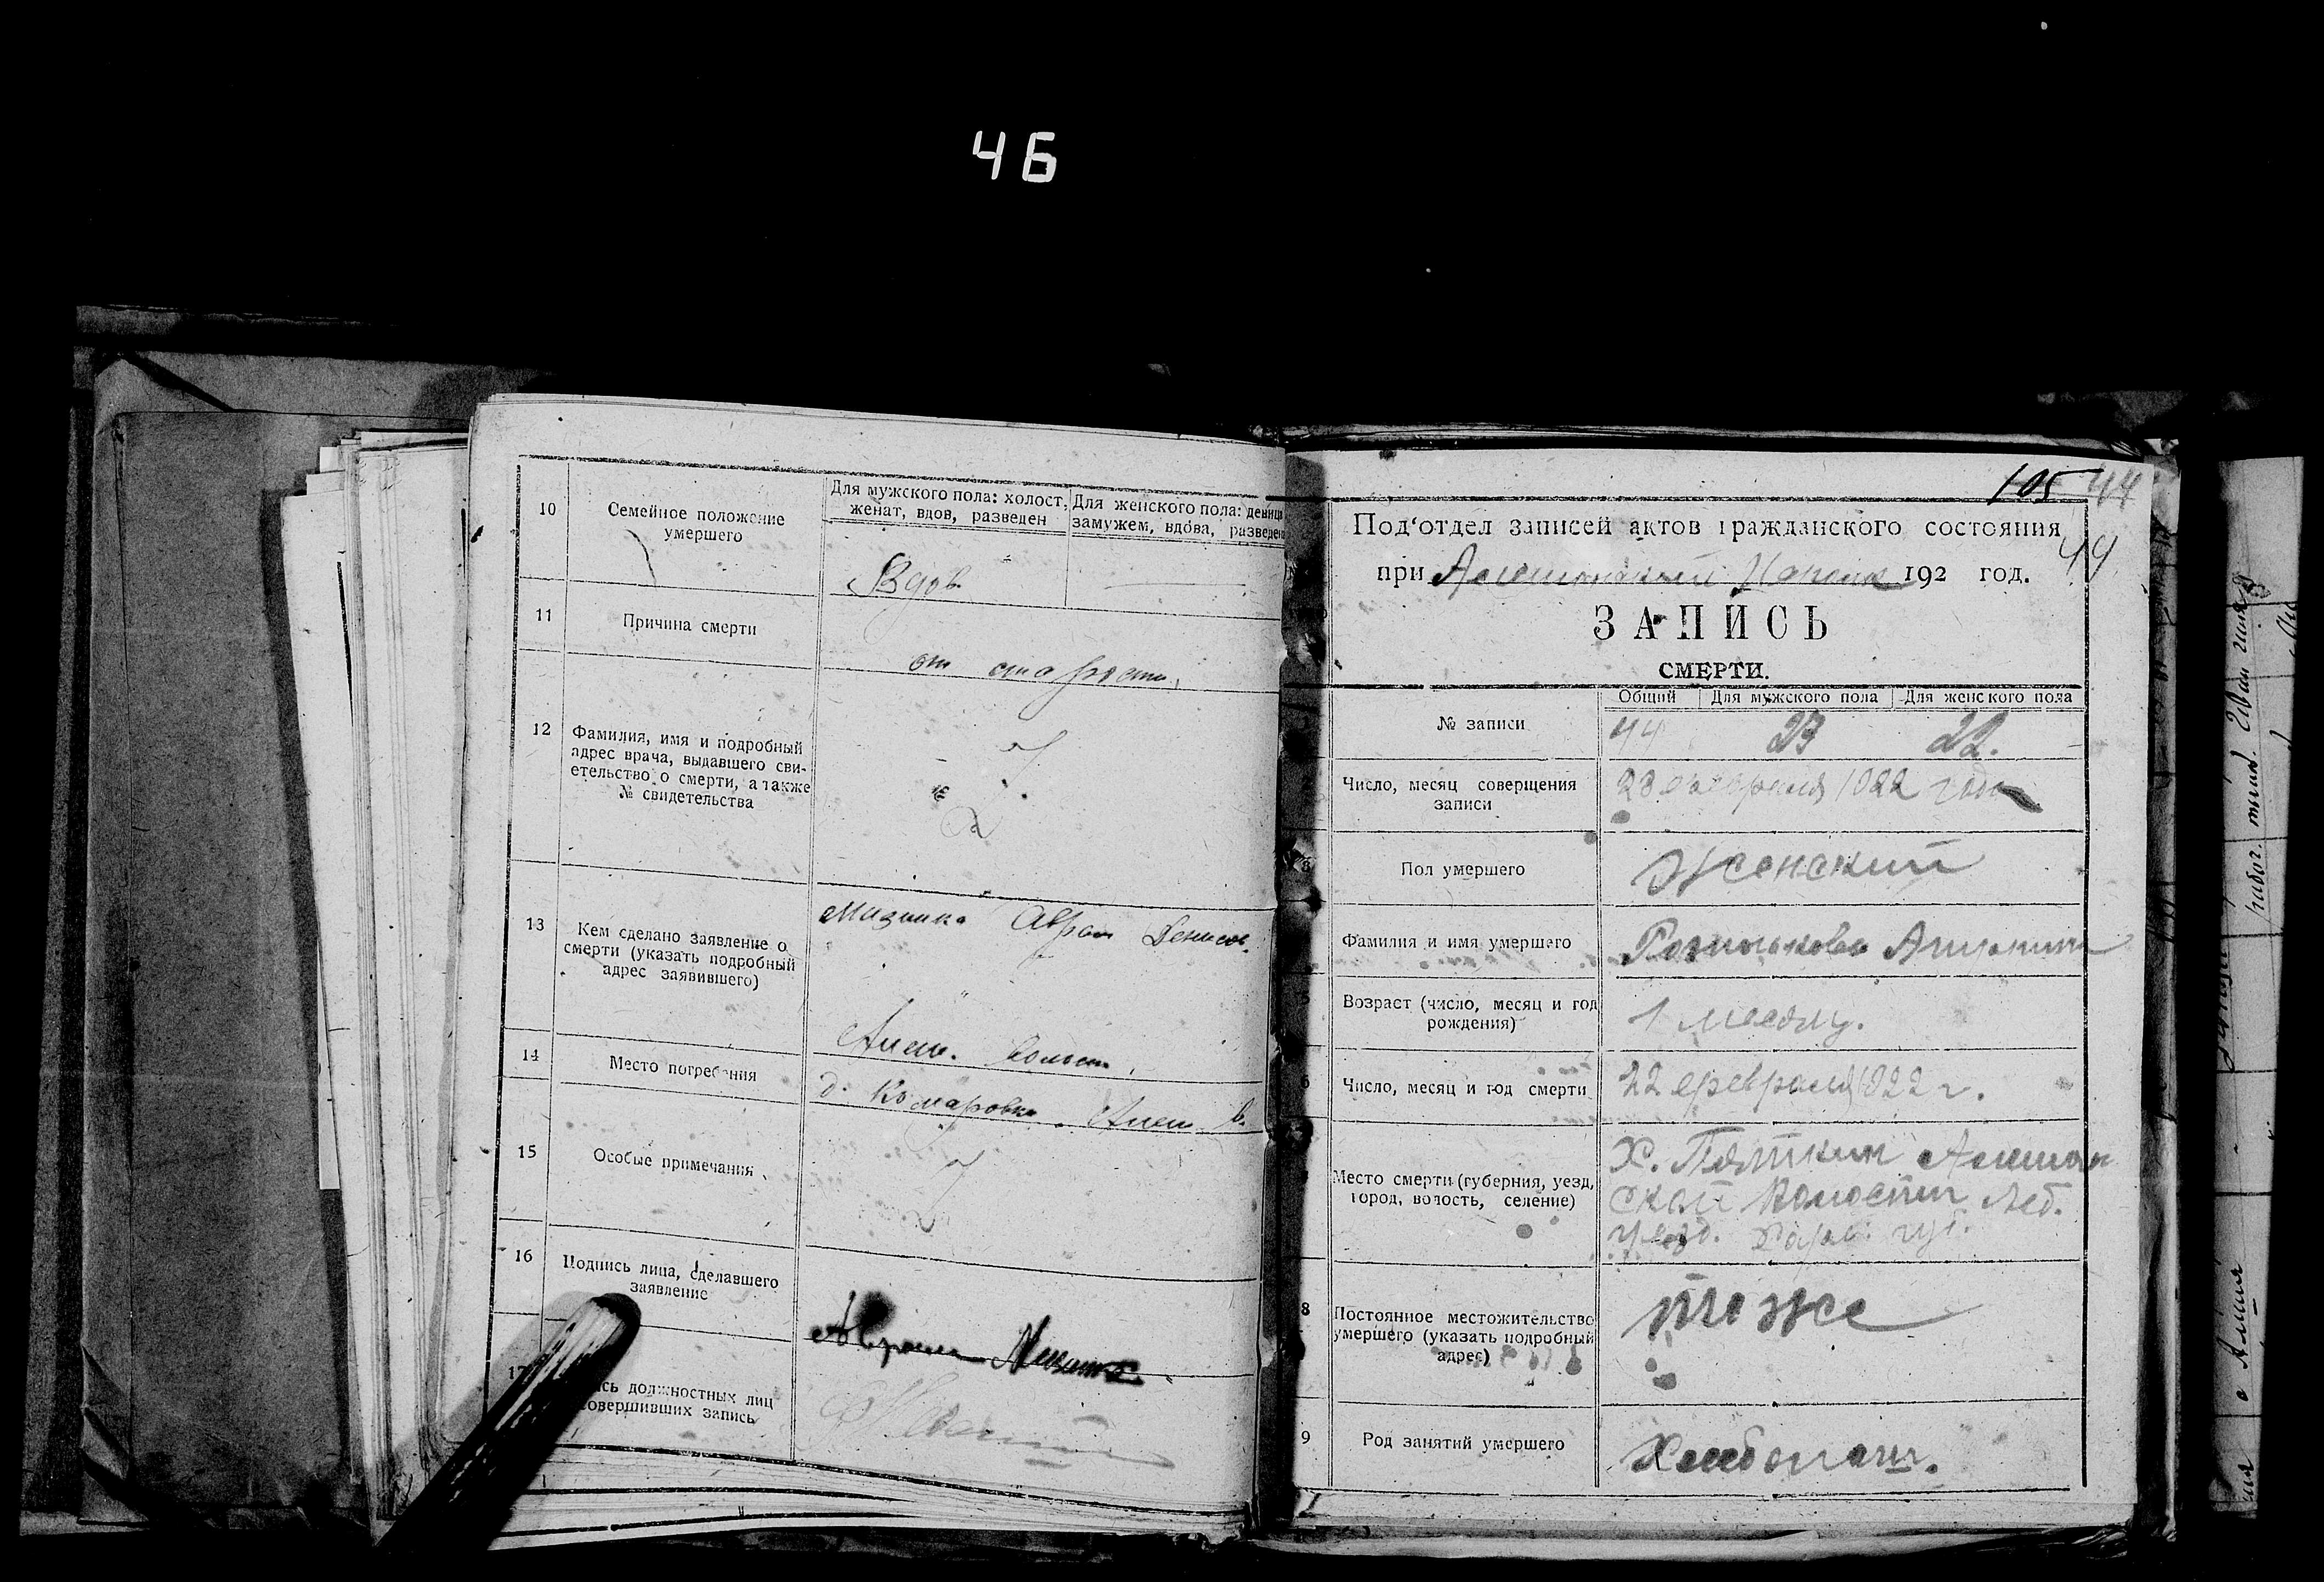 46
10
Семейное положение
умершего
Для мужского пола: холост,
женат, вдов, разведен
Для женского пола: девица
замужем, вдова, разведена
Вдов
11
Причина смерти
от старости,
12
Фамилия, имя и подробный
адрес врача, выдавшего сви-
етельство о смерти, а также
№ свидетельства
13
Кем сделано заявление о
смерти (указать подробный
адрес заявившего)
Аврам Денисов.
Алеш. волости,
14
Место погребения
д. Комаровка Алеш. в.
15
Особые примечания
16
Подпись лица, сделавшего
заявление
Аврам
17
сь должностных лиц
совершивших запись
105 44
Под'отдел записей актов гражданского состояния
44
при 192 год.
ЗАПИСЬ
СМЕРТИ.
№ записи
Общий Для мужского пола Для женского пола
44 23 22.
Число, месяц совершения
записи
23 февраля 1922 года
Пол умершего
Женский
Фамилия и имя умершего
Возраст (число, месяц и год
рождения)
1 месяц.
6
Число, месяц и год смерти
22 февраля 1922 г.
Место смерти (губерния, уезд,
город, волость, селение)
Х. Пяткин Алешан
ской Волости Леб.
уезд. Харьк. губ.
8
Постоянное местожительство
умершего (указать подробный
адрес)
тоже
9
Род занятий умершего
Хлебопаш.